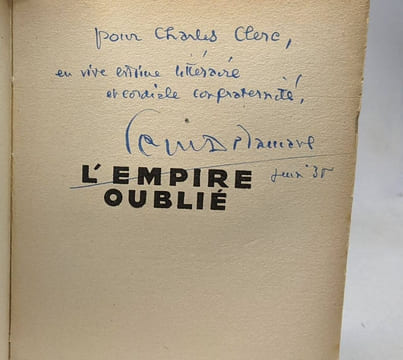 pour Charles Clerc,
en vive estime littéraire
et cordiale confraternité,
L'EMPIRE
OUBLIÉ
juin 35